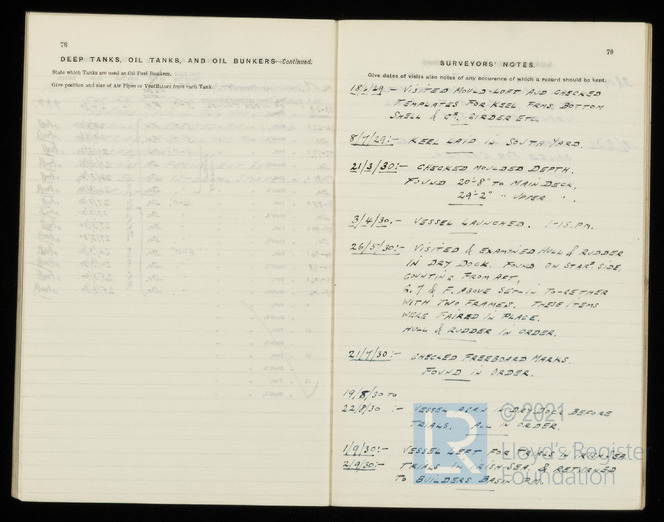 78
DEEP TANKS, OIL TANKS, AND OIL BUNKERS—Continued.
State which Tanks are used as Oil Fuel Bunkers.
Give position and size of Air Pipes or Ventilators from each Tank.
79
SURVEYORS' NOTES.
Give dates of visits also notes of any occurence of which a record should be kept.
18/6/29:- VISITED MOULD-LOFT AND CHECKED
TEMPLATES FOR KEEL FRMS. BOTTOM
SHELL & CR. GIRDER ETC.
8/7/29:- KEEL LAID IN SOUTH YARD.
21/3/30:- CHECKED MOULDED DEPTH.
FOUND 20'-8" TO MAIN DECK.
29'-2" " UPPER " .
3/4/30:- VESSEL LAUNCHED. 1-15 P.M.
26/5/30:- VISITED & EXAMINED HULL & RUDDER
IN DRY DOCK. FOUND ON STARD. SIDE,
COUNTING FROM AFT,
& F. ABOVE SET-IN TO-GETHER
WITH TWO FRAMES. THESE ITEMS
WERE FAIRED IN PLACE.
HULL & RUDDER IN ORDER.
21/7/30:- CHECKED FREEBOARD MARKS
FOUND IN ORDER.
19/8/30 TO
22/8/30 :- VESSEL AGAIN IN DRY DOCK BEFORE
TRIALS. ALL IN ORDER.
1/9/30:- VESSEL LEFT FOR TRIALS
2/9/30:- TRIALS IN IRISH SEA & RETURNED
TO BUILDERS BASIN P.M.
LR
© 2021
Lloyd's Register
Foundation